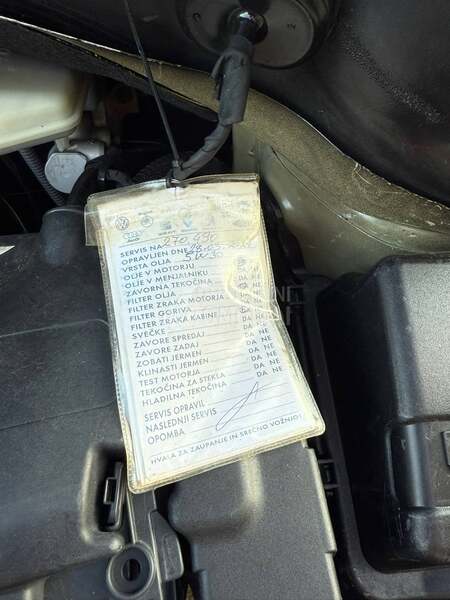 SERVIS NA 270 450
OPRAVLJEN DNE
VRSTA OLJA 5W30
OLJE V MOTORJU DA NE
OLJE V MENJALNIKU DA NE
ZAVORNA TEKOČINA DA NE
FILTER OLJA DA NE
FILTER ZRAKA MOTORJA DA NE
FILTER GORIVA DA NE
FILTER ZRAKA KABINE DA NE
SVEČKE DA NE
ZAVORE SPREDAJ DA NE
ZAVORE ZADAJ DA NE
ZOBATI JERMEN DA NE
KLINASTI JERMEN DA NE
TEST MOTORJA DA NE
TEKOČINA ZA STEKLA DA NE
HLADILNA TEKOČINA DA NE
SERVIS OPRAVIL
NASLEDNJI SERVIS
OPOMBA
HVALA ZA ZAUPANJE IN SREČNO VOŽNJO!